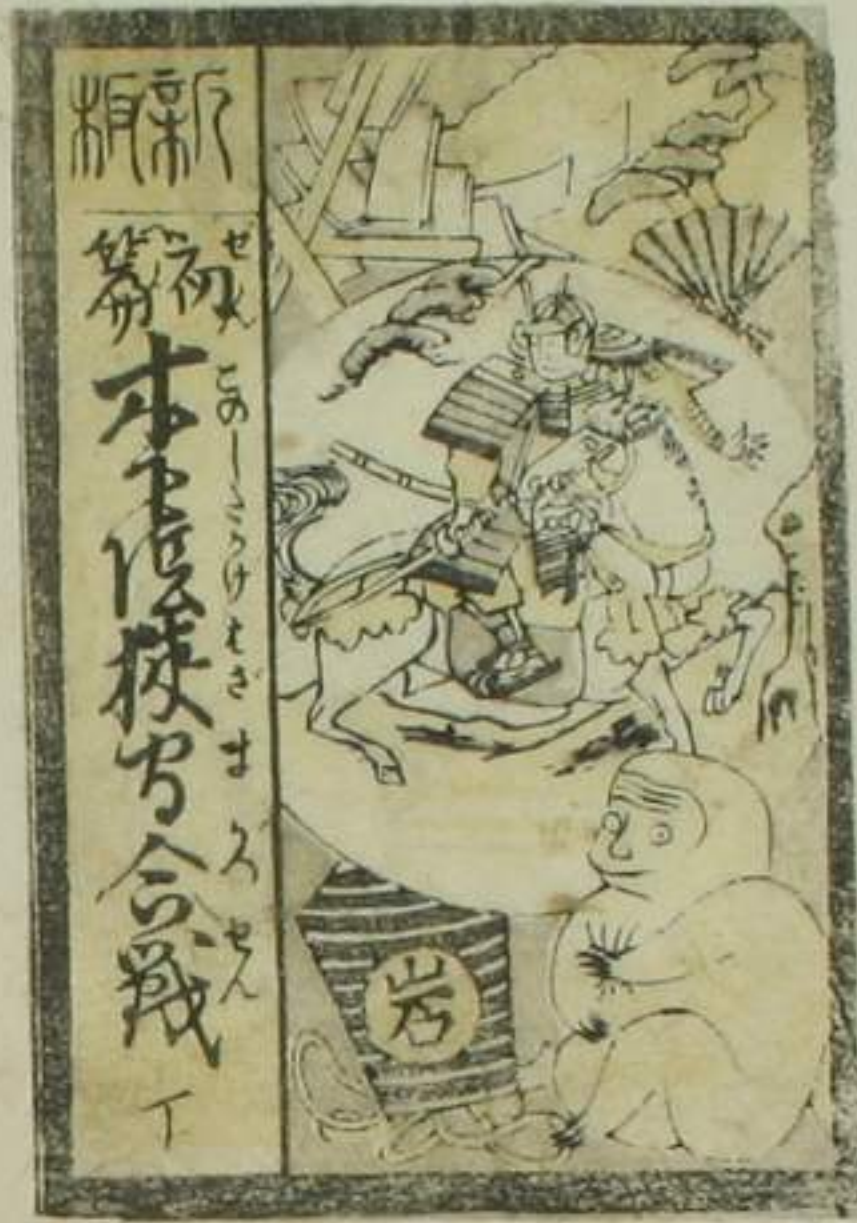 新板
ぜん
篇
このしたかけはざまがつせん
木下蔭狭間合戦
下
岩